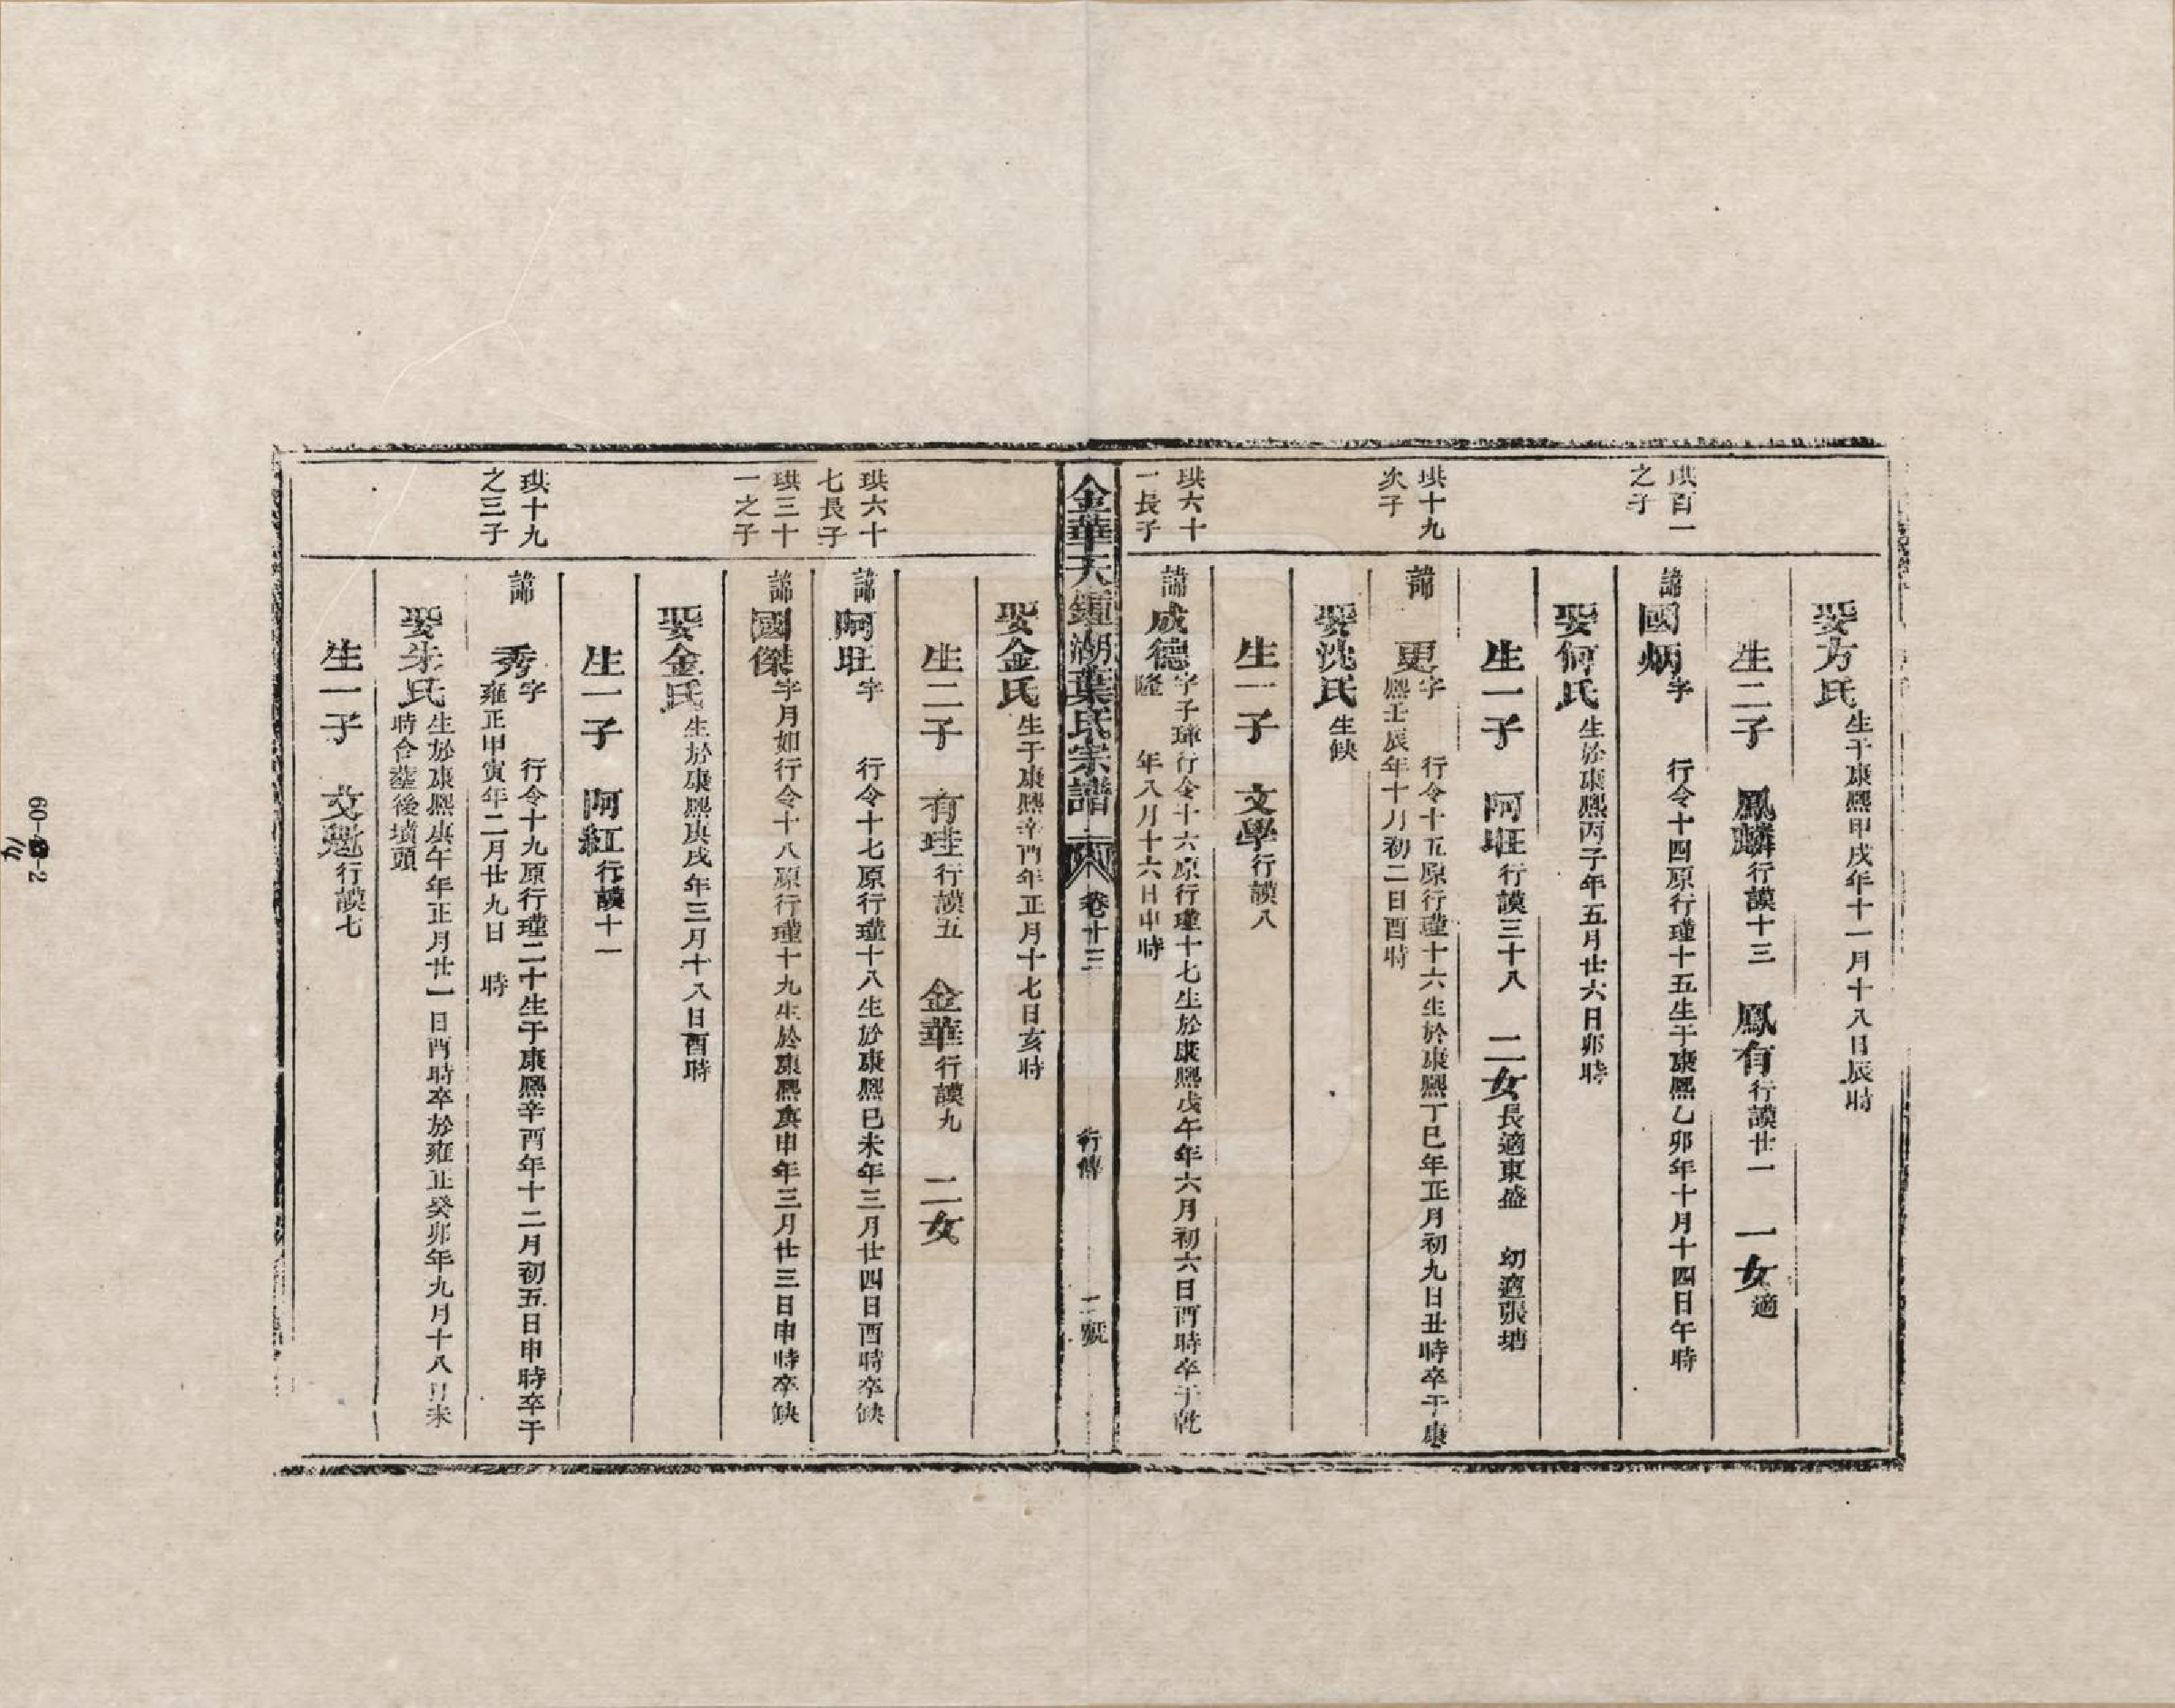 娶方氏生于康熙甲戌年十一月十八日辰時
生二子 鳳麟行謨十三 鳳有行謨廿一 一女適
珙百一之子
諱國炳字 行令十四原行瑾十五生于康熙乙卯年十月十四日午時
娶何氏生於康熙丙子年五月廿六日卯時
生一子 阿旺行謨三十八 二女長適東盛 幼適張塘
珙十九次子
諱 更字 行令十五原行瑾十六生於康熙丁巳年正月初九日丑時卒于康
熙壬辰年十月初二日酉時
娶沈氏生缺
生一子 文學行謨八
珙六十一長子
諱成德字子瑋行令十六原行瑾十七生於康熙戊午年六月初六日酉時卒于乾
隆 年八月十六日申時
金華大鍾湖葉氏宗譜 卷十三 行傳 二號
娶金氏生于康熙辛酉年正月十七日亥時
生二子 有珪行謨五 金華行謨九 二女
珙六十七長子
諱阿旺字 行令十七原行瑾十八生於康熙已未年三月廿四日酉時卒缺
珙三十一之子
諱國傑字月如行令十八原行瑾十九生於康熙庚申年三月廿三日申時卒缺
娶金氏生於康熙庚戌年三月十八日酉時
生一子 阿紅行謨十一
珙十九之三子
諱 秀字 行令十九原行瑾二十生于康熙辛酉年十二月初五日申時卒于
雍正甲寅年二月廿九日 時
娶朱氏生於康熙庚午年正月廿一日酉時卒於雍正癸卯年九月十八日未
時合塟後墳頭
生一子 文魁行謨七
60-
-2
14